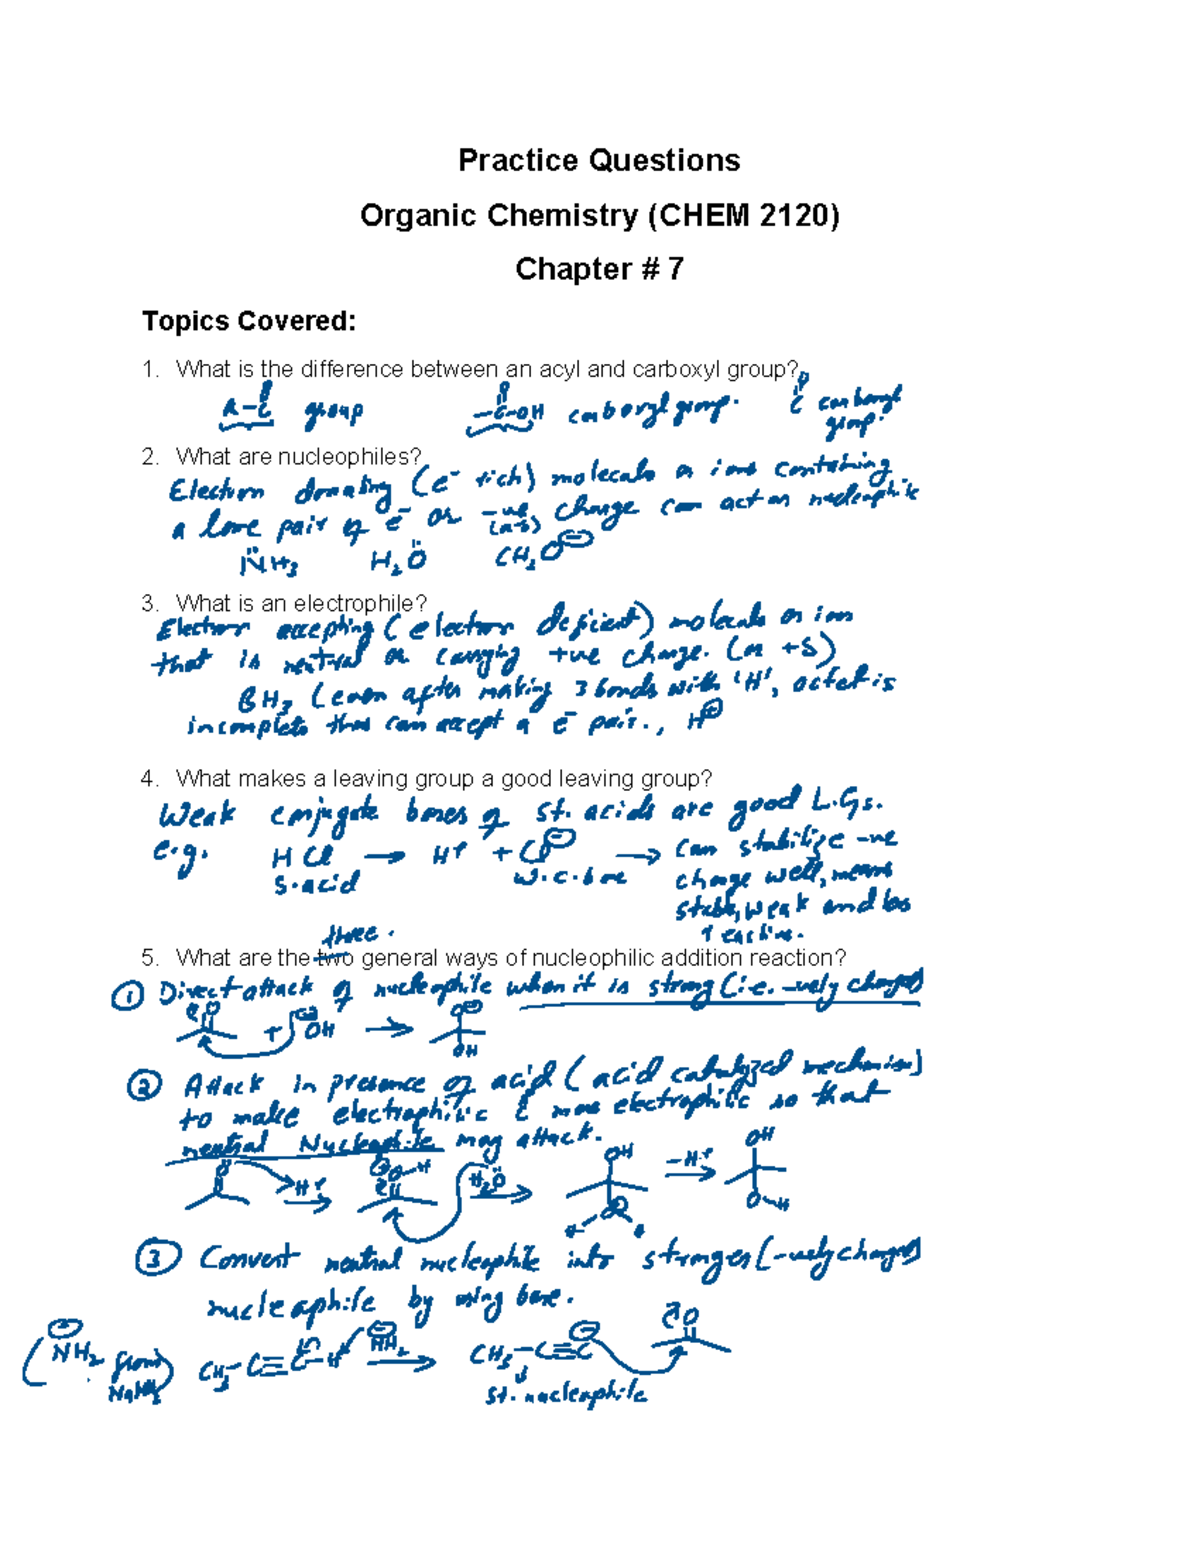 Practice Questions
Organic Chemistry (CHEM 2120)
Chapter # 7
Topics Covered:
1. What is the difference between an acyl and carboxyl group?
O O O
R-C group -C-OH carboxyl group. C carbonyl
group.
2. What are nucleophiles?
Electron donating (e⁻ rich) molecule or ions containing
a lone pair of e⁻ or -ve charge can act as nucleophile
NH₃ H₂O CH₃O⊖
3. What is an electrophile?
Electron accepting (electron deficient) molecule or ion
that is neutral or carrying +ve charge. (or +δ)
BH₃ (even after making 3 bonds with 'H', octet is
incomplete thus can accept a e⁻ pair., H⊕
4. What makes a leaving group a good leaving group?
Weak conjugate bases of st. acids are good L.Gs.
e.g. HCl → H⁺ + Cl⊖ → can stabilize -ve
s.acid w.c.base charge well, means
stable, weak and less
reactive.
three.
5. What are the two general ways of nucleophilic addition reaction?
① Direct attack of nucleophile when it is strong (i.e. -vely charged)
O + ⊖OH → O⊖
OH
② Attack in presence of acid (acid catalyzed mechanism)
to make electrophilic C more electrophilic so that
neutral Nucleophile may attack.
O H⁺ → ⊕O-H H₂O → OH -H⁺ → OH
O H H O-H
③ Convert neutral nucleophile into stronger (-vely charged)
nucleophile by using base.
(⊖NH₂ from NaNH₂) CH₃-C≡C-H ⊖NH₂ → CH₃-C≡C⊖ O
st. nucleophile